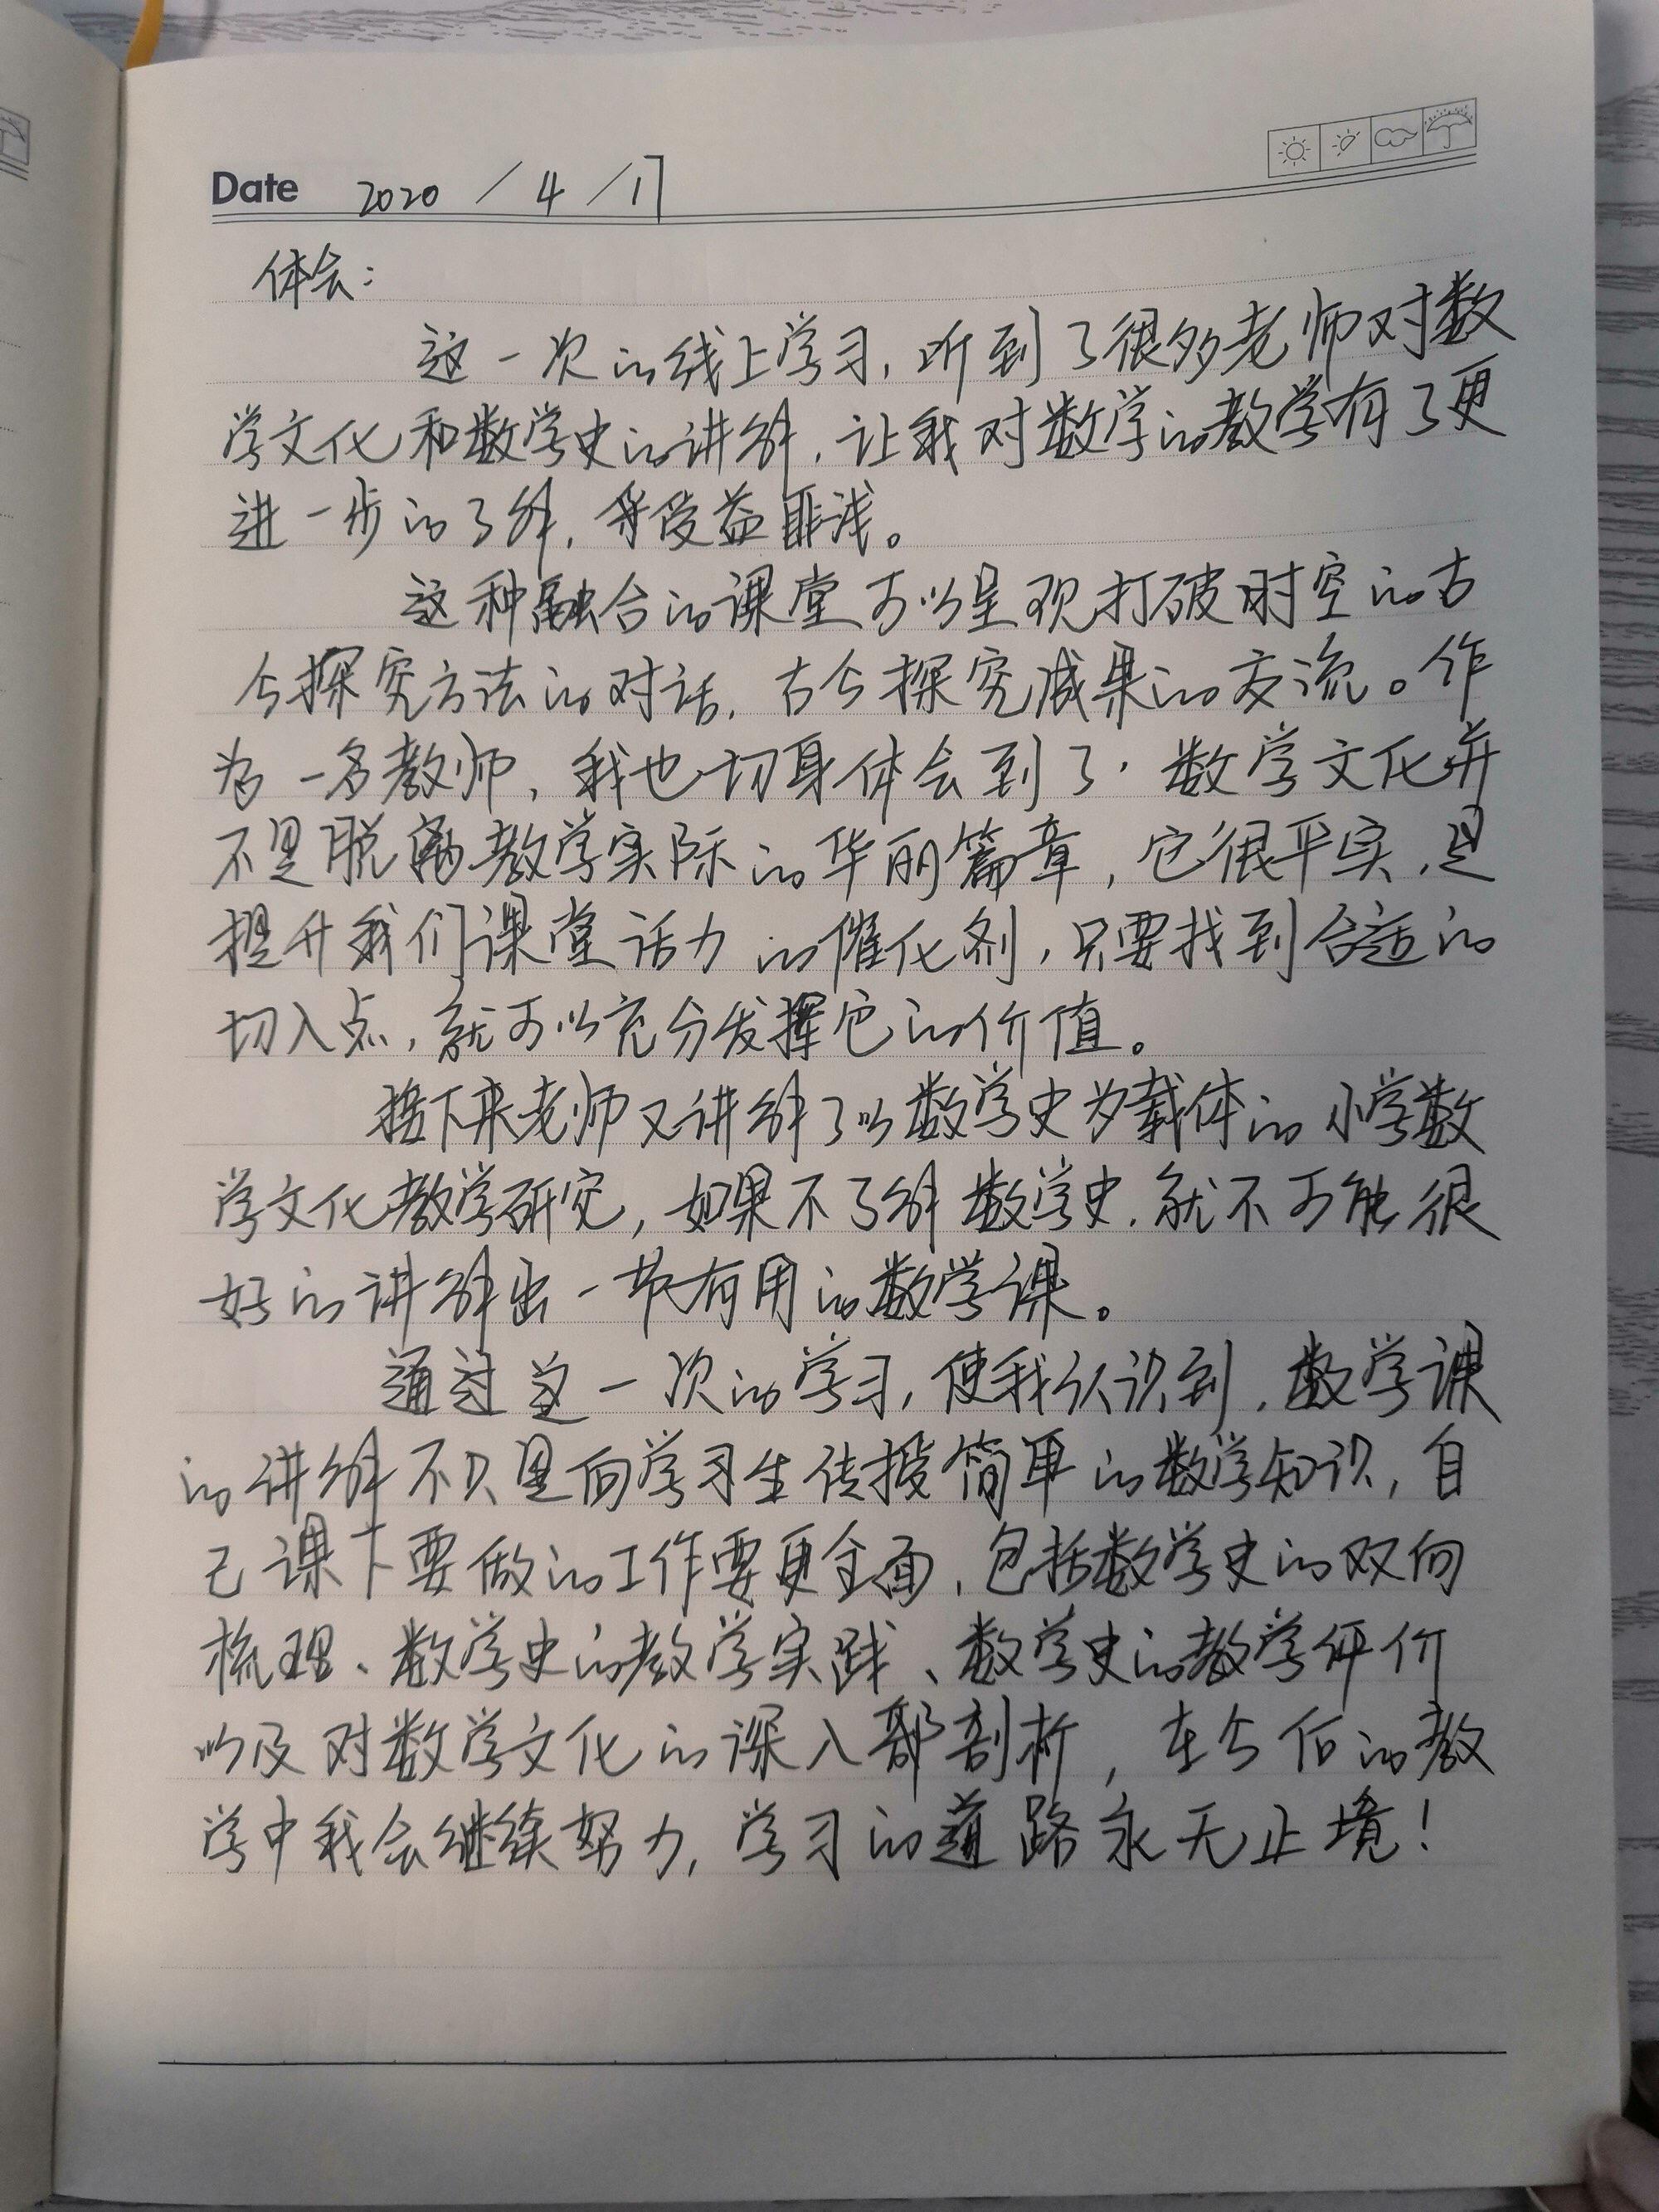 Date 2020 / 4 / 17
体会：
这一次的线上学习，听到了很多老师对数
学文化和数学史的讲解，让我对数学的教学有了更
进一步的了解，受益匪浅。
这种融合的课堂可以呈现打破时空的古
今探究方法的对话，古今探究成果的交流。作
为一名教师，我也切身体会到了，数学文化并
不是脱离教学实际的华丽篇章，它很平实，是
提升我们课堂活力的催化剂，只要找到合适的
切入点，就可以充分发挥它的价值。
接下来老师又讲解了以数学史为载体的小学数
学文化教学研究，如果不了解数学史，就不可能很
好的讲解出一节有用的数学课。
通过这一次的学习，使我认识到，数学课
的讲解不只是向学习生传授简单的数学知识，自
己课下要做的工作要更全面，包括数学史的双向
梳理、数学史的教学实践、数学史的教学评价
以及对数学文化的深入部剖析，在今后的教
学中我会继续努力，学习的道路永无止境！